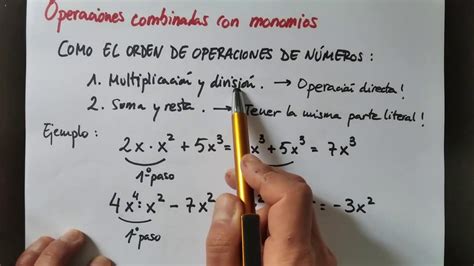 Operaciones combinadas con monomios
COMO EL ORDEN DE OPERACIONES DE NÚMEROS :
1. Multiplicación y división. → Operación directa!
2. Suma y resta. → Tener la misma parte literal!
Ejemplo:
2x · x² + 5x³ = x³ + 5x³ = 7x³
1º paso
4x⁴ : x² - 7x² = -3x²
1º paso